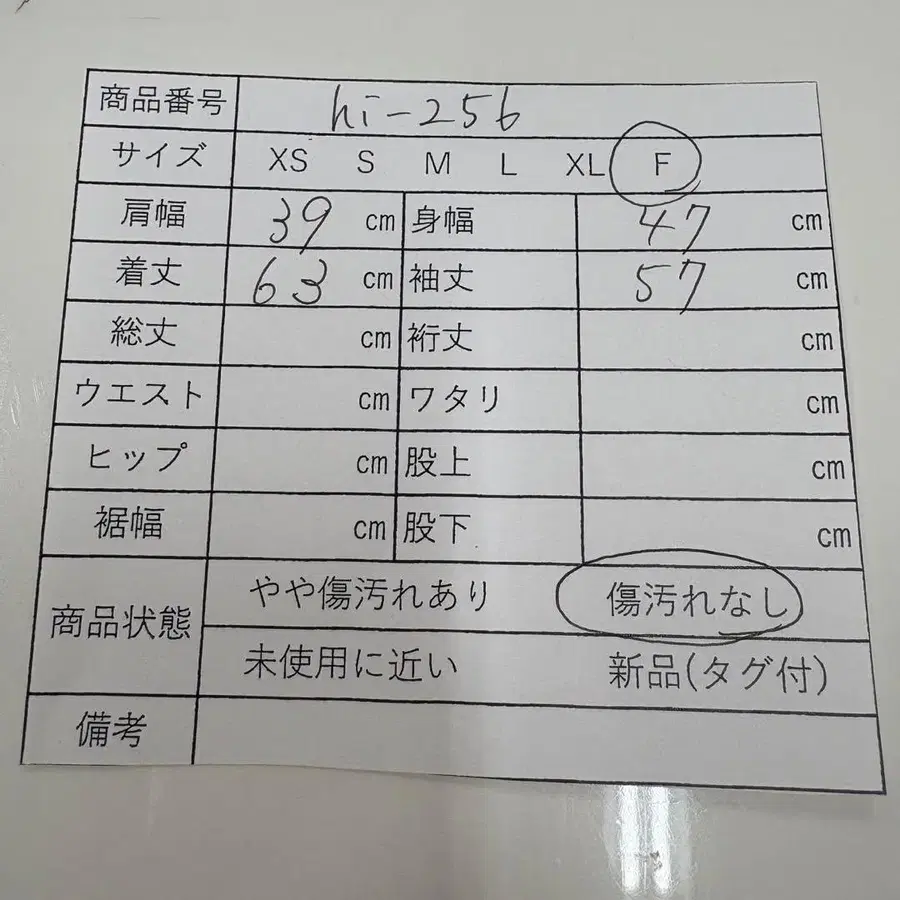 商品番号 hi-256
サイズ XS S M L XL F
肩幅 39 cm 身幅 47 cm
着丈 63 cm 袖丈 57 cm
総丈 cm 裄丈 cm
ウエスト cm ワタリ cm
ヒップ cm 股上 cm
裾幅 cm 股下 cm
商品状態 やや傷汚れあり 傷汚れなし
未使用に近い 新品(タグ付)
備考